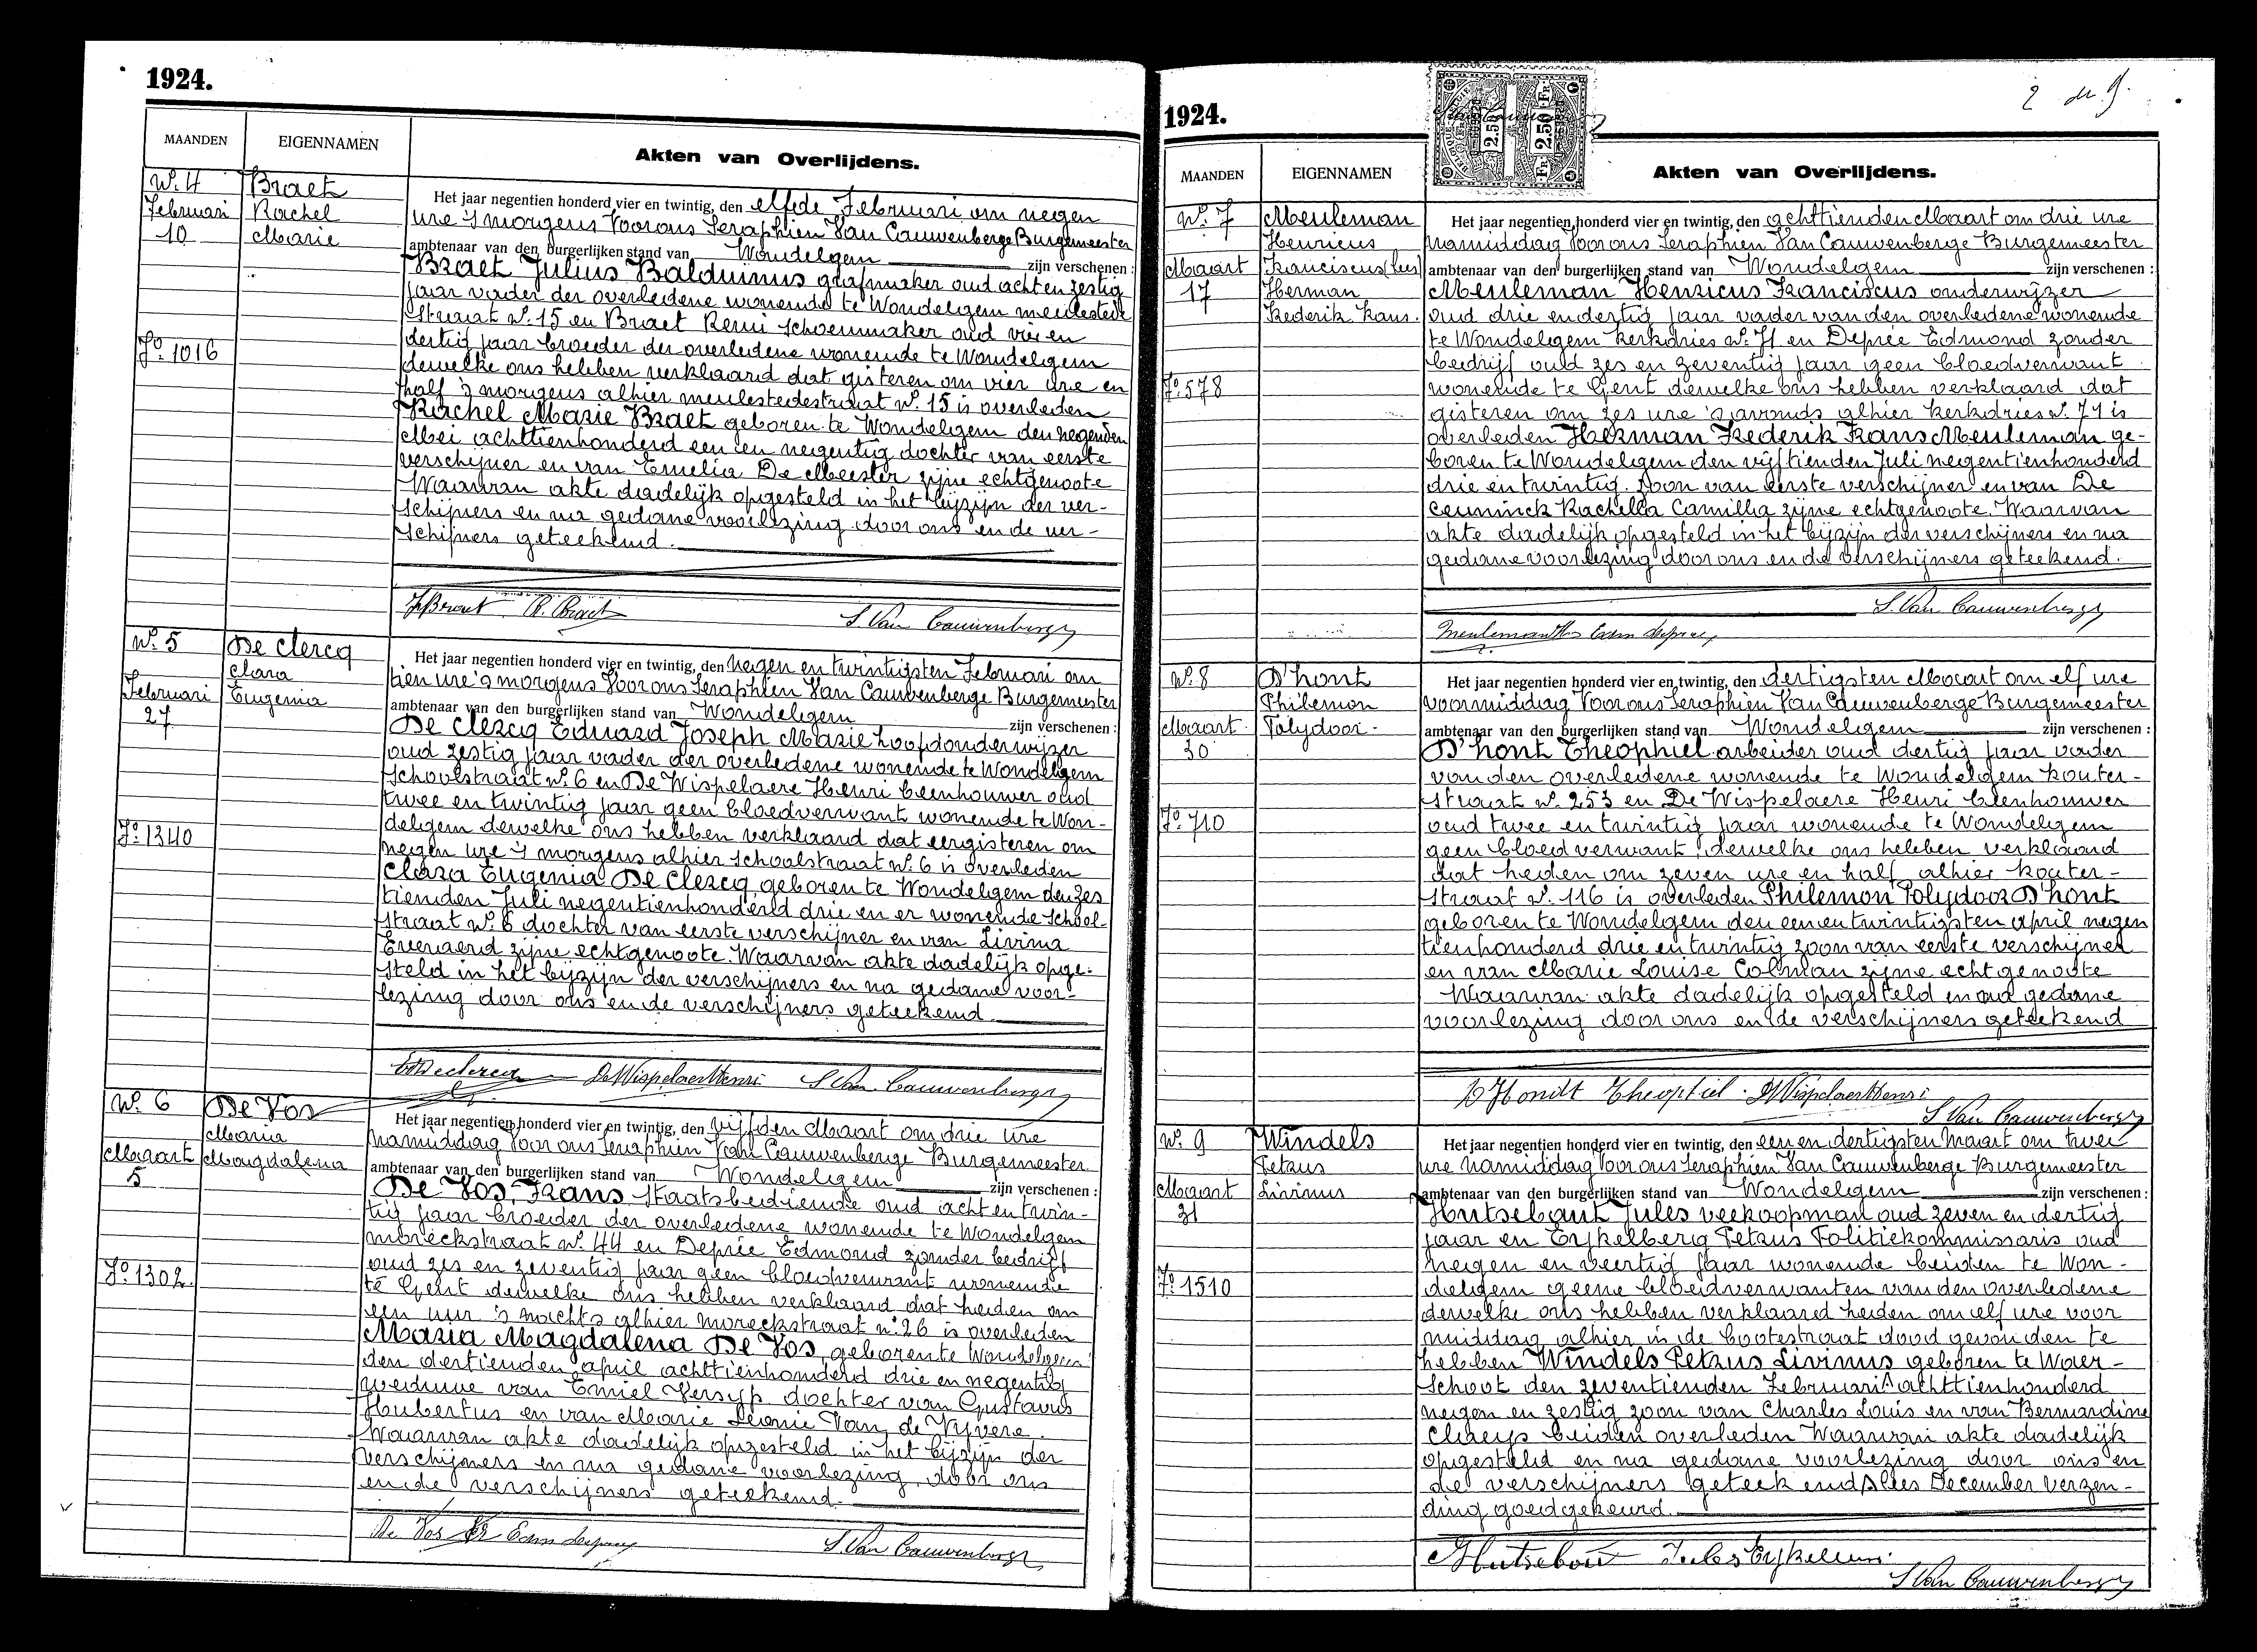 1924.
MAANDEN
EIGENNAMEN
Akten van Overlijdens.
N° 4
Februari
10
F° 1016
Braet
Rachel
Marie
Het jaar negentien honderd vier en twintig, den elfde Februari om negen
ure 's morgens Voor ons Seraphien Van Cauwenberge Burgemeester
ambtenaar van den burgerlijken stand van Wondelgem zijn verschenen :
Braet Julius Balduinus grafmaker oud acht en zestig
jaar vader der overledene wonende te Wondelgem meulestede
straat N° 15 en Braet Remi schoenmaker oud vier en
dertig jaar broeder der overledene wonende te Wondelgem
dewelke ons hebben verklaard dat gisteren om vier ure en
half 's morgens alhier meulestedestraat N° 15 is overleden
Rachel Marie Braet geboren te Wondelgem den negenden
Mei achttienhonderd een en negentig dochter van eerste
verschijner en van Emelia De Meester zijne echtgenoote
Waarvan akte dadelijk opgesteld in het bijzijn der ver-
schijners en na gedane voorlezing door ons en de ver-
schijners geteekend.
J Braet R. Braet S. Van Cauwenberge
N° 5
Februari
27
F° 1340
De Clercq
Clara
Eugenia
Het jaar negentien honderd vier en twintig, den negen en twintigsten Februari om
tien ure 's morgens Voor ons Seraphien Van Cauwenberge Burgemeester
ambtenaar van den burgerlijken stand van Wondelgem zijn verschenen :
De Clercq Eduard Joseph Marie hoofdonderwijzer
oud zestig jaar vader der overledene wonende te Wondelgem
Schoolstraat N° 6 en De Wispelaere Henri beenhouwer oud
twee en twintig jaar geen bloedverwant wonende te Won-
delgem dewelke ons hebben verklaard dat eergisteren om
negen ure 's morgens alhier Schoolstraat N° 6 is overleden
Clara Eugenia De Clercq geboren te Wondelgem den zes
tienden Juli negentienhonderd drie en er wonende School-
straat N° 6 dochter van eerste verschijner en van Livina
Everaerd zijne echtgenoote. Waarvan akte dadelijk opge-
steld in het bijzijn der verschijners en na gedane voor-
lezing door ons en de verschijners geteekend.
De Wispelaere Henri S Van Cauwenberge
N° 6
Maart
5
F° 1302
De Vos
Maria
Magdalena
Het jaar negentien honderd vier en twintig, den vijfden Maart om drie ure
namiddag Voor ons Seraphien Van Cauwenberge Burgemeester
ambtenaar van den burgerlijken stand van Wondelgem zijn verschenen :
De Vos, Frans Staatsbediende oud acht en twin-
tig jaar broeder der overledene wonende te Wondelgem
morekstraat N° 44 en Deprée Edmond zonder bedrijf
oud zes en zeventig jaar geen bloedverwant wonende
te Gent dewelke ons hebben verklaard dat heden om
een uur 's nachts alhier moreekstraat N° 26 is overleden
Maria Magdalena De Vos geboren te Wondelgem
den dertienden april achttienhonderd drie en negentig
weduwe van Emiel Versyp dochter van Gustavus
Hubertus en van Marie Leonie Van de Vyvere
Waarvan akte dadelijk opgesteld in het bijzijn der
verschijners en na gedane voorlezing door ons
en de verschijners geteekend.
De Vos Fr Edm Deprey S. Van Cauwenberge
2 de 9.
1924.
MAANDEN
EIGENNAMEN
2.50 Fr
Akten van Overlijdens.
N° 7
Maart
17
F° 578
Meuleman
Henricus
Franciscus
Herman
Frederik Frans.
Het jaar negentien honderd vier en twintig, den achttienden Maart om drie ure
namiddag Voor ons Seraphien Van Cauwenberge Burgemeester
ambtenaar van den burgerlijken stand van Wondelgem zijn verschenen :
Meuleman Henricus Franciscus onderwijzer
oud drie en dertig jaar vader van den overledene wonende
te Wondelgem Kerkdries N° 71 en Deprée Edmond zonder
bedrijf oud zes en zeventig jaar geen bloedverwant
wonende te Gent dewelke ons hebben verklaard dat
gisteren om zes ure 's avonds alhier Kerkdries N° 71 is
overleden Herman Frederik Frans Meuleman ge-
boren te Wondelgem den vijftienden Juli negentienhonderd
drie en twintig. Zoon van eerste verschijner en van De
Ceuninck Rachella Camilla zijne echtgenoote. Waarvan
akte dadelijk opgesteld in het bijzijn der verschijners en na
gedane voorlezing door ons en de verschijners geteekend.
S. Van Cauwenberge
Edm Deprey
N° 8
Maart
30
F° 710
D'hont
Philemon
Polydoor
Het jaar negentien honderd vier en twintig, den dertigsten Maart om elf ure
voormiddag Voor ons Seraphien Van Cauwenberge Burgemeester
ambtenaar van den burgerlijken stand van Wondelgem zijn verschenen :
D'hont Theophiel arbeider oud dertig jaar vader
van den overledene wonende te Wondelgem Kouter-
straat N° 253 en De Wispelaere Henri beenhouwer
oud twee en twintig jaar wonende te Wondelgem
geen bloedverwant, dewelke ons hebben verklaard
dat heden om zeven ure en half alhier Kouter-
straat N° 116 is overleden Philemon Polydoor D'hont
geboren te Wondelgem den een en twintigsten april negen
tienhonderd drie en twintig zoon van eerste verschijner
en van Marie Louise Colman zijne echtgenoote
Waarvan akte dadelijk opgesteld en na gedane
voorlezing door ons en de verschijners geteekend
D'Hondt Theophiel. De Wispelaere Henri
S Van Cauwenberge
N° 9
Maart
31
F° 1510
Windels
Petrus
Livinus
Het jaar negentien honderd vier en twintig, den een en dertigsten Maart om twee
ure namiddag Voor ons Seraphien Van Cauwenberge Burgemeester
ambtenaar van den burgerlijken stand van Wondelgem zijn verschenen :
Hutsebaut Jules veekoopman oud zeven en dertig
jaar en Eykelberg Petrus Politiekommissaris oud
negen en veertig jaar wonende beiden te Won-
delgem geene bloedverwanten van den overledene
dewelke ons hebben verklaard heden om elf ure voor
middag alhier in de bootestraat dood gevonden te
hebben Windels Petrus Livinus geboren te Waer-
schoot den zeventienden Februari achttienhonderd
negen en zestig zoon van Charles Louis en van Bernardine
Claeys beiden overleden Waarvan akte dadelijk
opgesteld en na gedane voorlezing door ons en
de verschijners geteekend December verzen-
ding goedgekeurd.
Hutsebaut Jules
S Van Cauwenberge